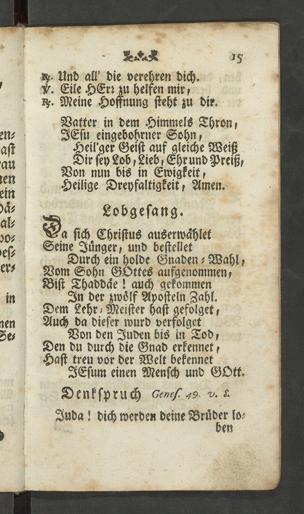 15
℟. Und all' die verehren dich.
℣. Eile HErr zu helfen mir,
℟. Meine Hoffnung steht zu dir.
Vatter in dem Himmels Thron,
JEsu eingebohrner Sohn,
Heil'ger Geist auf gleiche Weiß
Dir sey Lob, Lieb, Ehr und Preiß,
Von nun bis in Ewigkeit,
Heilige Dreyfaltigkeit, Amen.
Lobgesang.
Da sich Christus auserwählet
Seine Jünger, und bestellet
Durch ein holde Gnaden-Wahl,
Vom Sohn GOttes aufgenommen,
Bist Thaddäe! auch gekommen
In der zwölf Aposteln Zahl.
Dem Lehr-Meister hast gefolget,
Auch da dieser wurd verfolget
Von den Juden bis in Tod,
Den du durch die Gnad erkennet,
Hast treu vor der Welt bekennet
JEsum einen Mensch und GOtt.
Denkspruch Genes. 49. v. 8.
Juda! dich werden deine Brüder lo-
ben